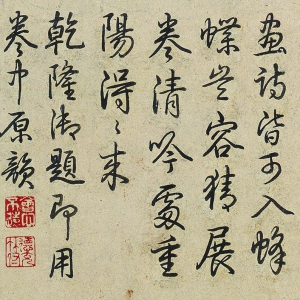 画詩皆可入蜂
蝶豈容猜展
卷清吟處重
陽得〻来
乾隆御題即用
卷中原韻